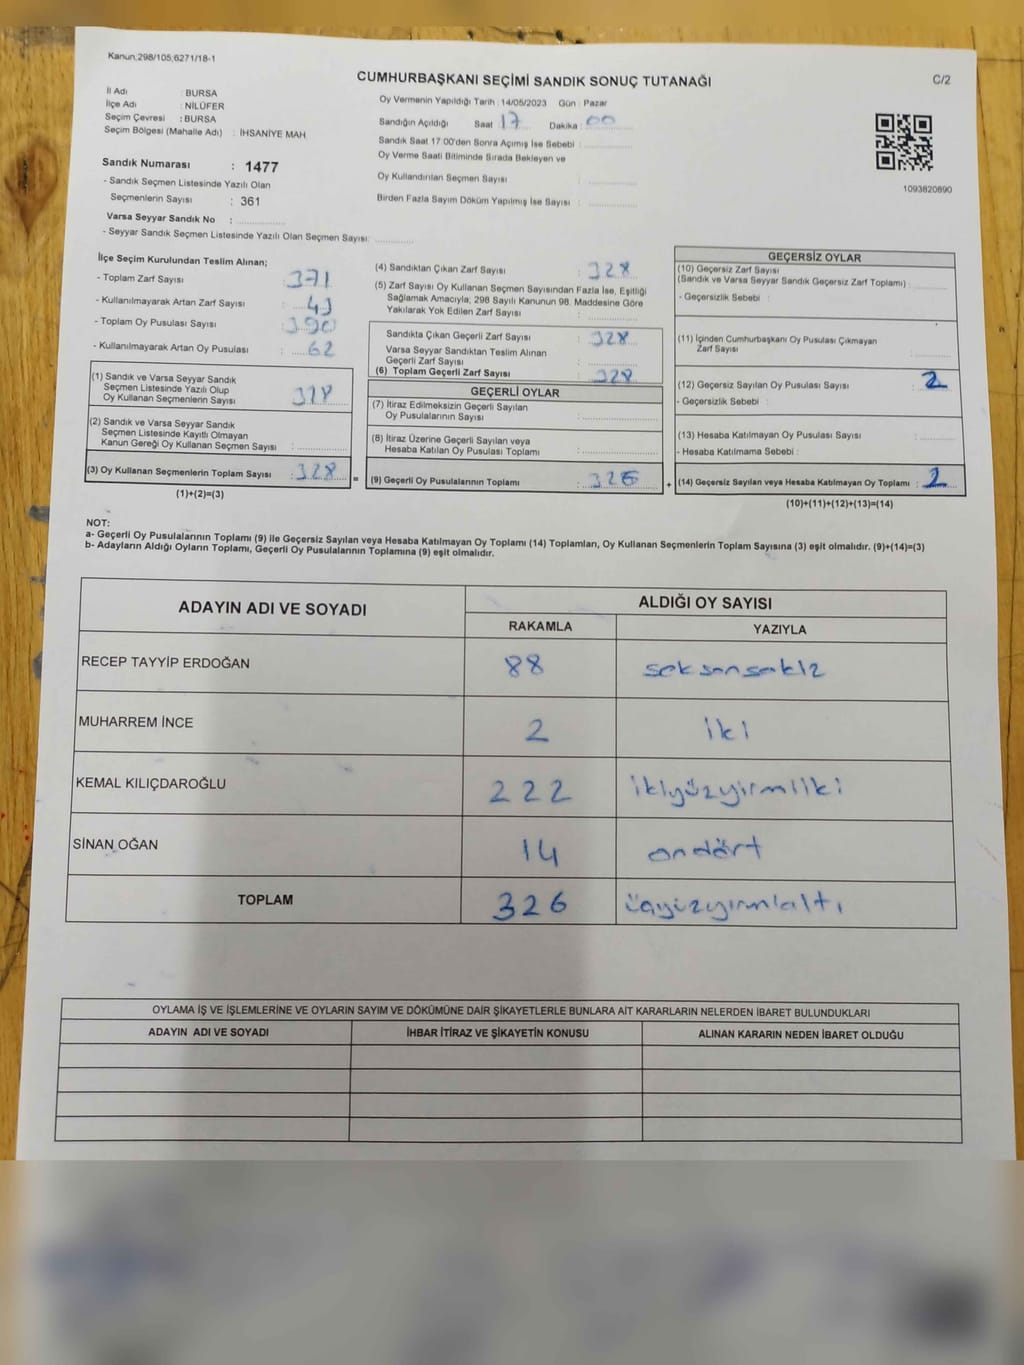 Kanun;298/105;6271/18-1
CUMHURBAŞKANI SEÇİMİ SANDIK SONUÇ TUTANAĞI
C/2
İl Adı : BURSA
İlçe Adı : NİLÜFER
Seçim Çevresi : BURSA
Seçim Bölgesi (Mahalle Adı) : İHSANİYE MAH
Sandık Numarası : 1477
- Sandık Seçmen Listesinde Yazılı Olan
Seçmenlerin Sayısı : 361
Varsa Seyyar Sandık No :
- Seyyar Sandık Seçmen Listesinde Yazılı Olan Seçmen Sayısı:
Oy Vermenin Yapıldığı Tarih : 14/05/2023 Gün : Pazar
Sandığın Açıldığı Saat : 17 Dakika : 00
Sandık Saat 17:00'den Sonra Açımış İse Sebebi :
Oy Verme Saati Bitiminde Sırada Bekleyen ve
Oy Kullandırılan Seçmen Sayısı :
Birden Fazla Sayım Döküm Yapılmış İse Sayısı :
1093820890
İlçe Seçim Kurulundan Teslim Alınan;
- Toplam Zarf Sayısı : 371
- Kullanılmayarak Artan Zarf Sayısı : 43
- Toplam Oy Pusulası Sayısı : 390
- Kullanılmayarak Artan Oy Pusulası : 62
(1) Sandık ve Varsa Seyyar Sandık
Seçmen Listesinde Yazılı Olup
Oy Kullanan Seçmenlerin Sayısı : 328
(2) Sandık ve Varsa Seyyar Sandık
Seçmen Listesinde Kayıtlı Olmayan
Kanun Gereği Oy Kullanan Seçmen Sayısı :
(3) Oy Kullanan Seçmenlerin Toplam Sayısı : 328
(1)+(2)=(3)
(4) Sandıktan Çıkan Zarf Sayısı : 328
(5) Zarf Sayısı Oy Kullanan Seçmen Sayısından Fazla İse, Eşitliği
Sağlamak Amacıyla; 298 Sayılı Kanunun 98. Maddesine Göre
Yakılarak Yok Edilen Zarf Sayısı :
Sandıkta Çıkan Geçerli Zarf Sayısı : 328
Varsa Seyyar Sandıktan Teslim Alınan
Geçerli Zarf Sayısı :
(6) Toplam Geçerli Zarf Sayısı : 328
GEÇERLİ OYLAR
(7) İtiraz Edilmeksizin Geçerli Sayılan
Oy Pusulalarının Sayısı :
(8) İtiraz Üzerine Geçerli Sayılan veya
Hesaba Katılan Oy Pusulası Toplamı :
= (9) Geçerli Oy Pusulalarının Toplamı : 326
GEÇERSİZ OYLAR
(10) Geçersiz Zarf Sayısı
(Sandık ve Varsa Seyyar Sandık Geçersiz Zarf Toplamı) :
- Geçersizlik Sebebi :
(11) İçinden Cumhurbaşkanı Oy Pusulası Çıkmayan
Zarf Sayısı :
(12) Geçersiz Sayılan Oy Pusulası Sayısı : 2
- Geçersizlik Sebebi :
(13) Hesaba Katılmayan Oy Pusulası Sayısı :
- Hesaba Katılmama Sebebi :
+ (14) Geçersiz Sayılan veya Hesaba Katılmayan Oy Toplamı : 2
(10)+(11)+(12)+(13)=(14)
NOT:
a- Geçerli Oy Pusulalarının Toplamı (9) ile Geçersiz Sayılan veya Hesaba Katılmayan Oy Toplamı (14) Toplamları, Oy Kullanan Seçmenlerin Toplam Sayısına (3) eşit olmalıdır. (9)+(14)=(3)
b- Adayların Aldığı Oyların Toplamı, Geçerli Oy Pusulalarının Toplamına (9) eşit olmalıdır.
ADAYIN ADI VE SOYADI ALDIĞI OY SAYISI
RAKAMLA YAZIYLA
RECEP TAYYİP ERDOĞAN 88 seksensekiz
MUHARREM İNCE 2 iki
KEMAL KILIÇDAROĞLU 222 ikiyüzyirmiiki
SİNAN OĞAN 14 ondört
TOPLAM 326 üçyüzyirmialtı
OYLAMA İŞ VE İŞLEMLERİNE VE OYLARIN SAYIM VE DÖKÜMÜNE DAİR ŞİKAYETLERLE BUNLARA AİT KARARLARIN NELERDEN İBARET BULUNDUKLARI
ADAYIN ADI VE SOYADI İHBAR İTİRAZ VE ŞİKAYETİN KONUSU ALINAN KARARIN NEDEN İBARET OLDUĞU